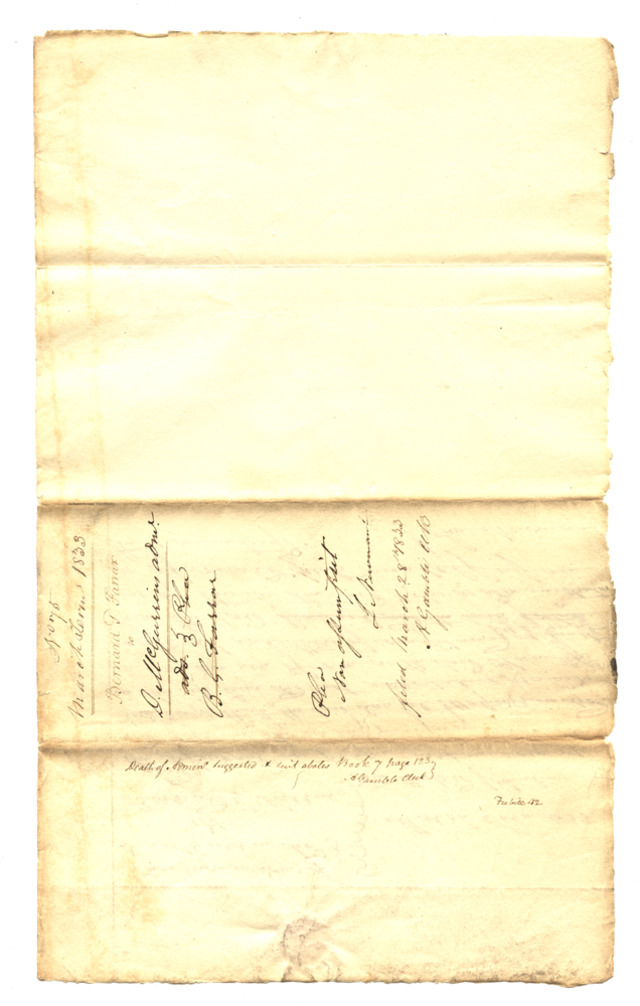 No 75
March Term 1833
Bernard G. Farrar
vs
D. McGuireins admr.
ads. } Plea
B. G. Farrar
Plea
Non assumpsit
filed March 28th 1833
A Gamble Clk
Death of Admin. suggested & suit abates Book 7 page 123
A Gamble Clerk